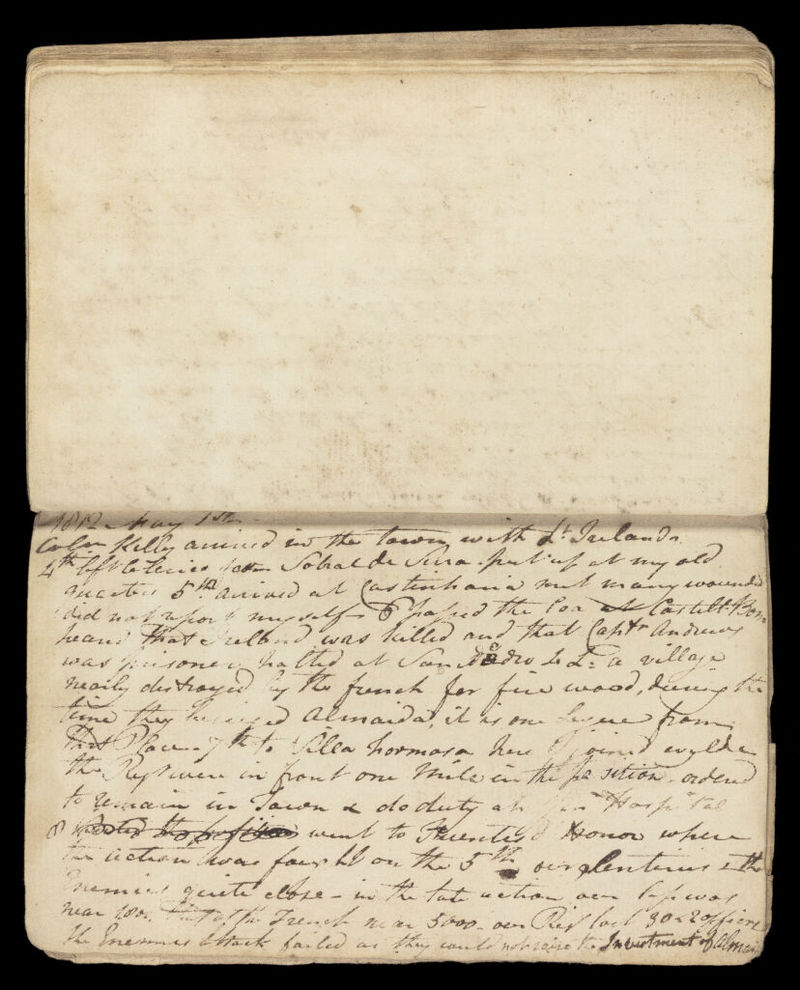 1812 May 1st
Coln Kelly arrived in the town with Lt Irelands
4th left Celerico for Sobral de Serra put up at my old
quarters 5th arived at Castenharia met many wounded
did not report myself 6 passed the Coa at Castell-Bon
heard that Ireland was killed and that Captn Andrews
was prisoner, halted at San Pedro 4 L: a village
nearly destroyed by the french for fire wood, during the
time they besieged Almaida, it is one legue from
that Place. 7th to Villa hormosa here I joined
the Regt were in front one Mile in the position ordered
to remain in Town & do duty at the Hospital
8 went to Fuentes d Honor where
the action was fought on the 5th our Senteries & the
Enemies quite close - in the late action our loss was
near 1800 that of the French near 5000 our Regt lost 30 & 2 officers
the Enemies attack failed as they could not raise the Investment of Almaid